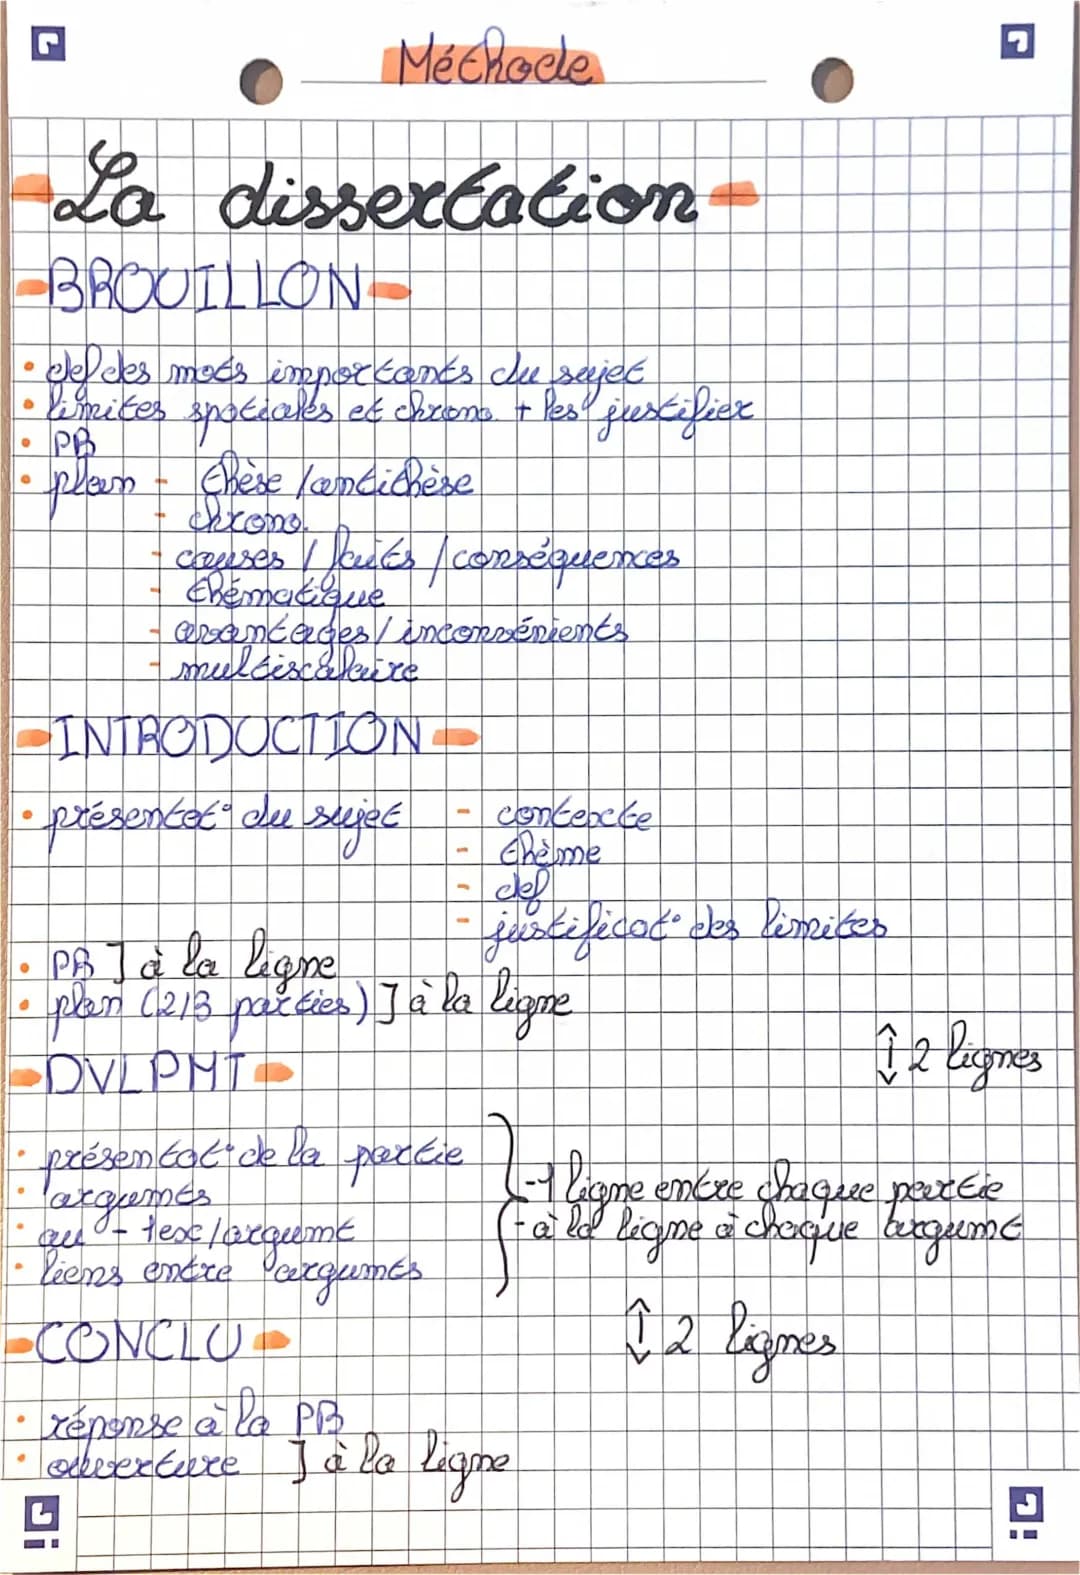 Méthode
La dissertation
BROUILLON
• def des mots importants du sujet
• limites spatiales et chrono. + les justifier
• PB
• plan - thèse / antithèse
- chrono.
- causes / faits / conséquences
- thématique
- avantages / inconvénients
- multiscalaire
INTRODUCTION
• présentat° du sujet - contexte
- thème
- def
- justificat° des limites
• PB ] à la ligne
• plan (2/3 parties) ] à la ligne
↕ 2 lignes
DVLPMT
• présentat° de la partie
• argumts
• au - 1ex/argumt
• liens entre argumts
- 1 ligne entre chaque partie
- à la ligne à chaque argumt
↕ 2 lignes
CONCLU
• réponse à la PB
• ouverture ] à la ligne